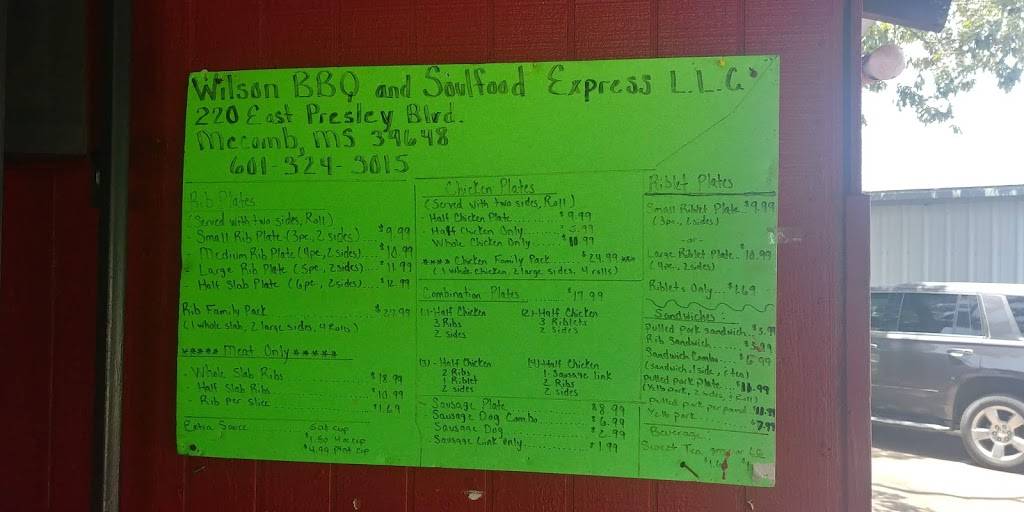 Wilson BBQ and Soulfood Express L.L.C
220 East Presley Blvd.
Mccomb, MS 39648
601-324-3015
Rib Plates
(Served with two sides, Roll)
- Small Rib Plate (3pc, 2 sides) .... $9.99
Medium Rib Plate (4pc, 2 sides) ... $10.99
Large Rib Plate (5pc, 2 sides) ... $11.99
Half Slab Plate (6pc, 2 sides) ... $12.99
Rib Family Pack
(1 whole slab, 2 large sides, 4 rolls)
***** Meat Only *****
- Whole Slab Ribs ... $18.99
- Half Slab Ribs ... $10.99
- Rib per slice ... $1.69
Extra Sauce
$1.50 4oz cup
$4.99 pint cup
Chicken Plates
(Served with two sides, Roll)
- Half Chicken Plate ........ $9.99
- Half Chicken Only ..... $5.99
Whole Chicken Only .... $10.99
**** Chicken Family Pack ..... $24.99 ***
(1 whole chicken, 2 large sides, 4 rolls)
Combination Plates ... $17.99
(1)-Half Chicken
3 Ribs
2 sides
(2)-Half Chicken
3 Riblets
2 sides
(3)-Half Chicken
2 Ribs
1 Riblet
2 sides
(4)-Half Chicken
1 Sausage link
2 Ribs
2 sides
- Sausage Plate ... $8.99
Sausage Dog Combo ... $6.99
Sausage Dog ... $2.99
- Sausage Link Only ... $1.99
Riblet Plates
Small Riblet Plate .. $9.99
(3pc, 2 sides)
-or-
Large Riblet Plate .. 10.99
(4pc, 2 sides)
Riblets Only... $1.69
Sandwiches:
Pulled pork sandwich .. $5.99
Rib Sandwich ... $5.99
Sandwich Combo ... $6.99
(sandwich, 1 side, & tea)
pulled pork plate
pulled pork per pound
$7.99
Beverage
Sweet Tea